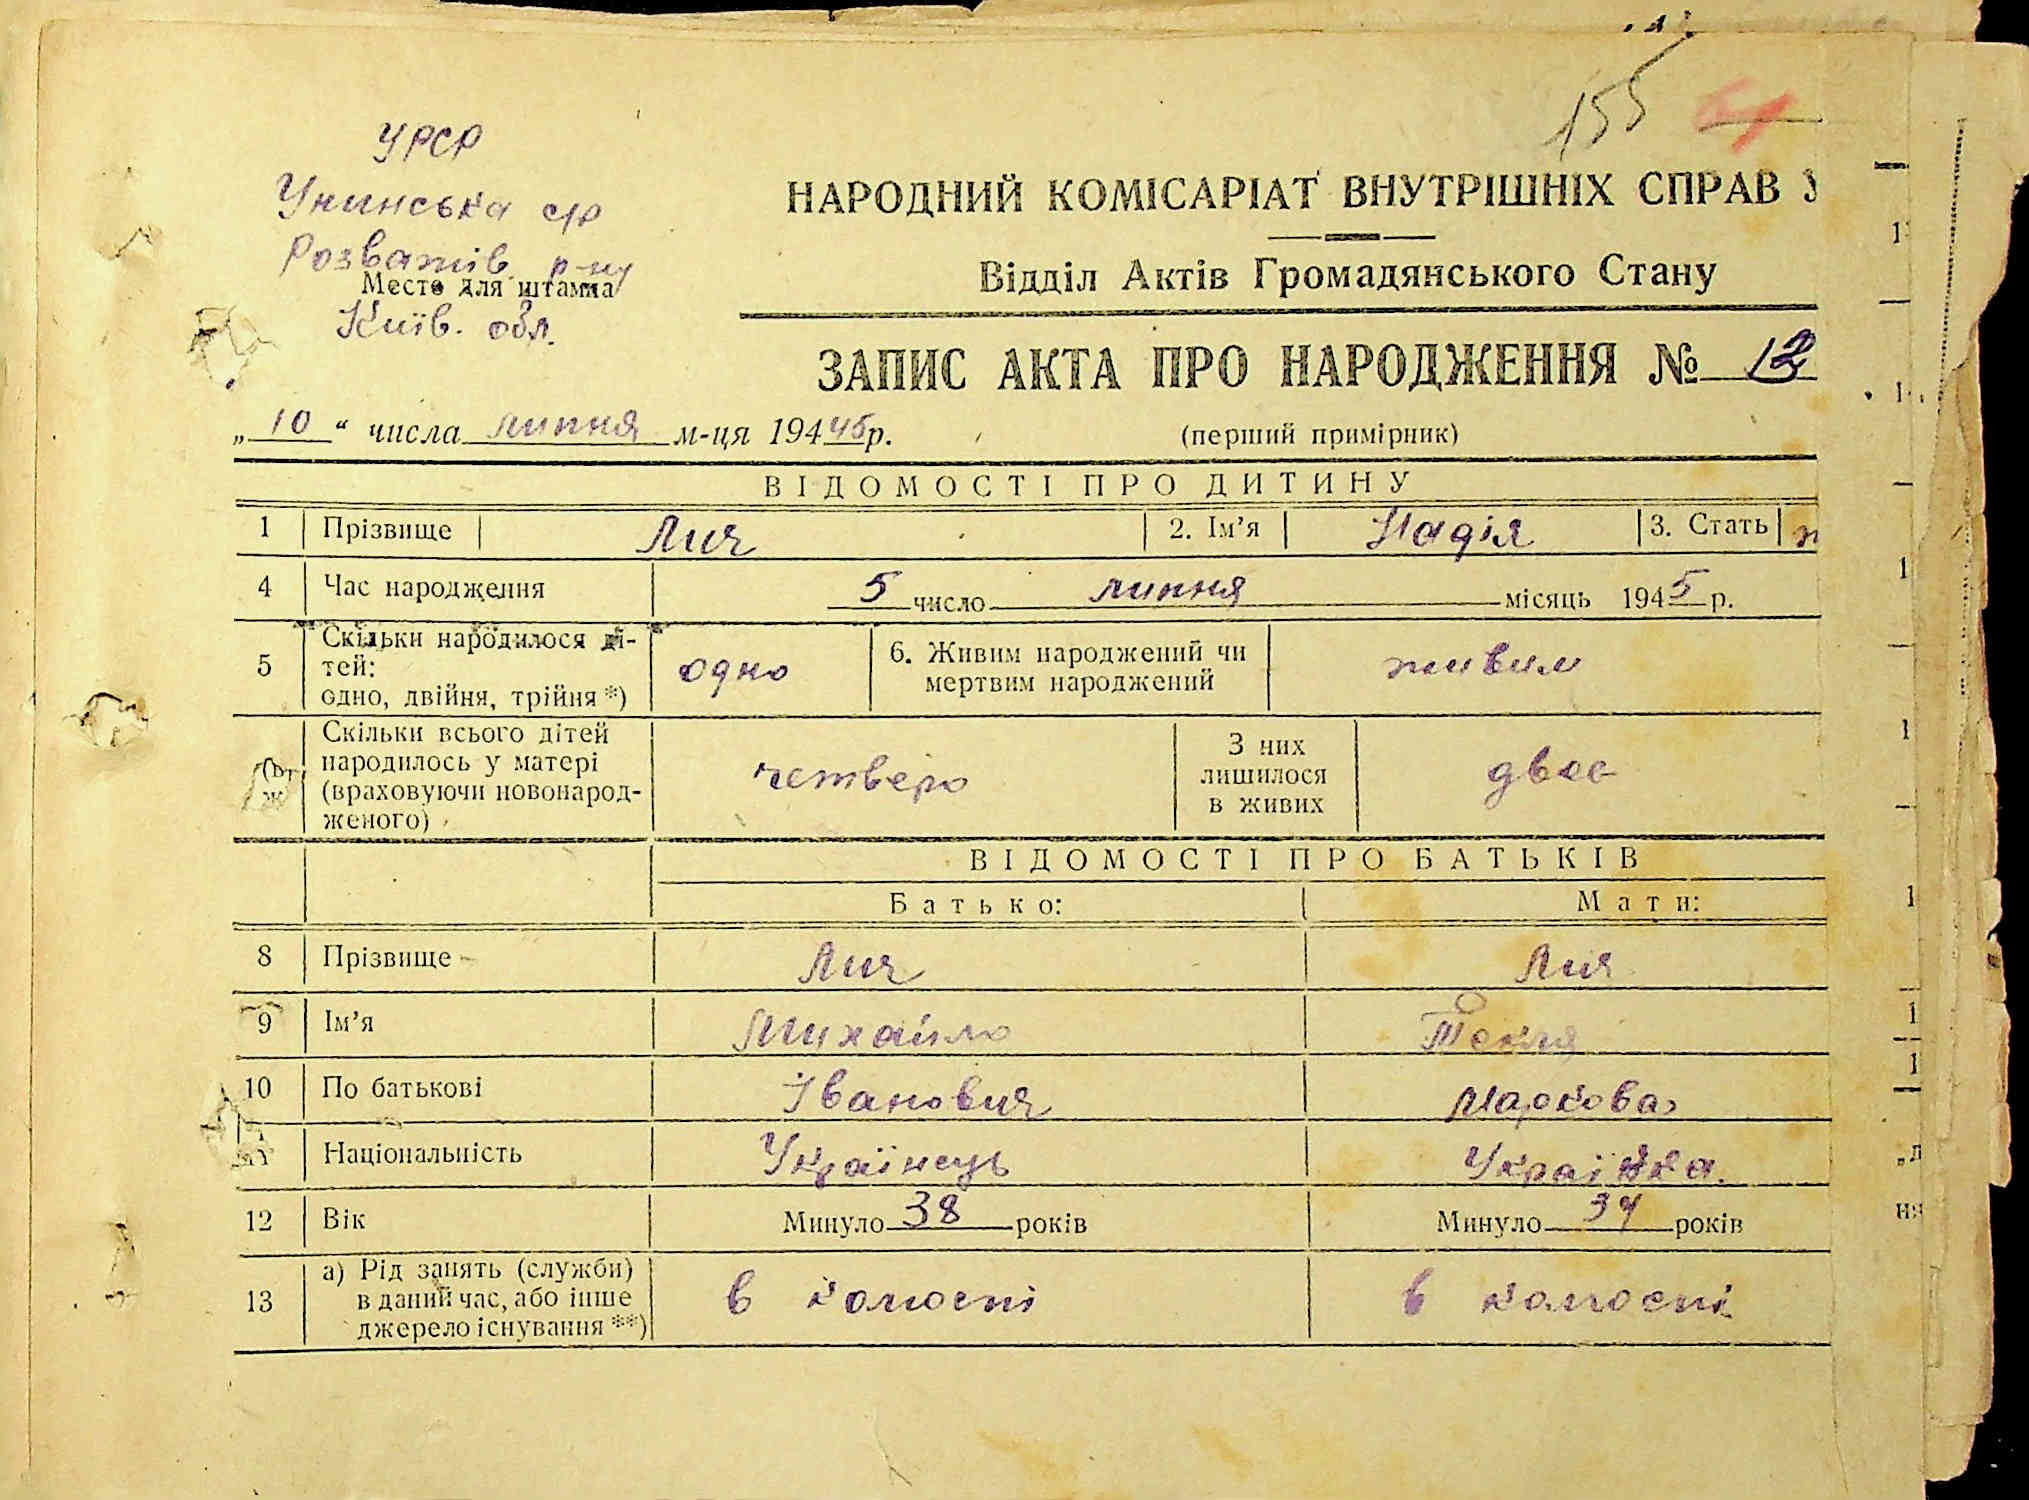 155 61
УРСР
Унинська с/р
Розважів. р-ну
Место для штампа
Київ. обл.
НАРОДНИЙ КОМІСАРІАТ ВНУТРІШНІХ СПРАВ У
Відділ Актів Громадянського Стану
ЗАПИС АКТА ПРО НАРОДЖЕННЯ № 12
„ 10 “ числа липня м-ця 194 45 р. (перший примірник)
ВІДОМОСТІ ПРО ДИТИНУ
1 Прізвище Лич 2. Ім’я Надія 3. Стать ж
4 Час народження 5 число липня місяць 1945 р.
5 Скільки народилося ді-
тей:
одно, двійня, трійня *) одно 6. Живим народжений чи
мертвим народжений живим
Скільки всього дітей
народилось у матері
(враховуючи новонарод-
женого) четверо З них
лишилося
в живих двоє
ВІДОМОСТІ ПРО БАТЬКІВ
Батько: Мати:
8 Прізвище Лич Лич
9 Ім’я Михайло Текля
10 По батькові Іванович Маркова
Національність Українець Українка.
12 Вік Минуло 38 років Минуло 34 років
13 а) Рід занять (служби)
в даний час, або інше
джерело існування **) в колгоспі в колгоспі